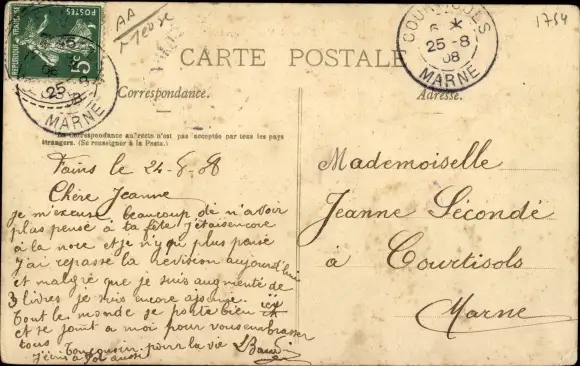 AA
1754
CARTE POSTALE
Correspondance.
Adresse.
La Correspondance au recto n'est pas acceptée par tous les pays
étrangers. (Se renseigner à la Poste.)
POSTES
5c
25
MARNE
COURTISOLS
6 *
25-8
08
MARNE
Fains le 24-8-08
Chère Jeanne
je m'excuse beaucoup de n'avoir
plus pensé à ta fête j'étais encore
à la noce et je n'y ai plus pensé
J'ai repassé la révision aujourd'hui
et malgré que je suis augmenté de
3 livres je suis encore ajourné.
Tout le monde se porte bien ici
et se joint a moi pour vous embrasser
tous Ton cousin pour la vie
J'écris à aussi
Mademoiselle
Jeanne Sécondé
à Courtisols
Marne